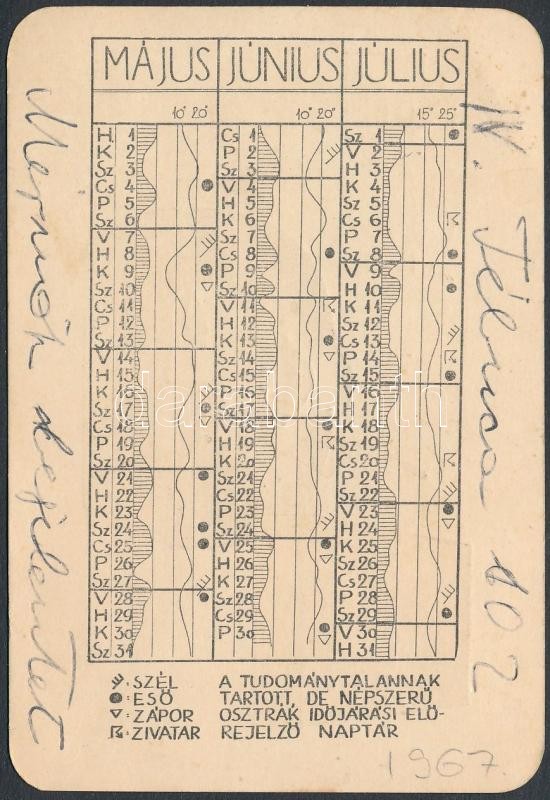 MÁJUS JÚNIUS JÚLIUS
10° 20° 10° 20° 15° 25°
H 1 Cs 1 Sz 1
K 2 P 2 V 2
Sz 3 Sz 3 H 3
Cs 4 V 4 K 4
P 5 H 5 Sz 5
Sz 6 K 6 Cs 6
V 7 Sz 7 P 7
H 8 Cs 8 Sz 8
K 9 P 9 V 9
Sz 10 Sz 10 H 10
Cs 11 V 11 K 11
P 12 H 12 Sz 12
Sz 13 K 13 Cs 13
V 14 Sz 14 P 14
H 15 Cs 15 Sz 15
K 16 P 16 V 16
Sz 17 Sz 17 H 17
Cs 18 V 18 K 18
P 19 H 19 Sz 19
Sz 20 K 20 Cs 20
V 21 Sz 21 P 21
H 22 Cs 22 Sz 22
K 23 P 23 V 23
Sz 24 Sz 24 H 24
Cs 25 V 25 K 25
P 26 H 26 Sz 26
Sz 27 K 27 Cs 27
V 28 Sz 28 P 28
H 29 Cs 29 Sz 29
K 30 P 30 V 30
Sz 31 H 31
SZÉL A TUDOMÁNYTALANNAK
ESŐ TARTOTT, DE NÉPSZERŰ
ZÁPOR OSZTRÁK IDŐJÁRÁSI ELŐ-
ZIVATAR REJELZŐ NAPTÁR
IV. Téluca 102
1967
darabanth